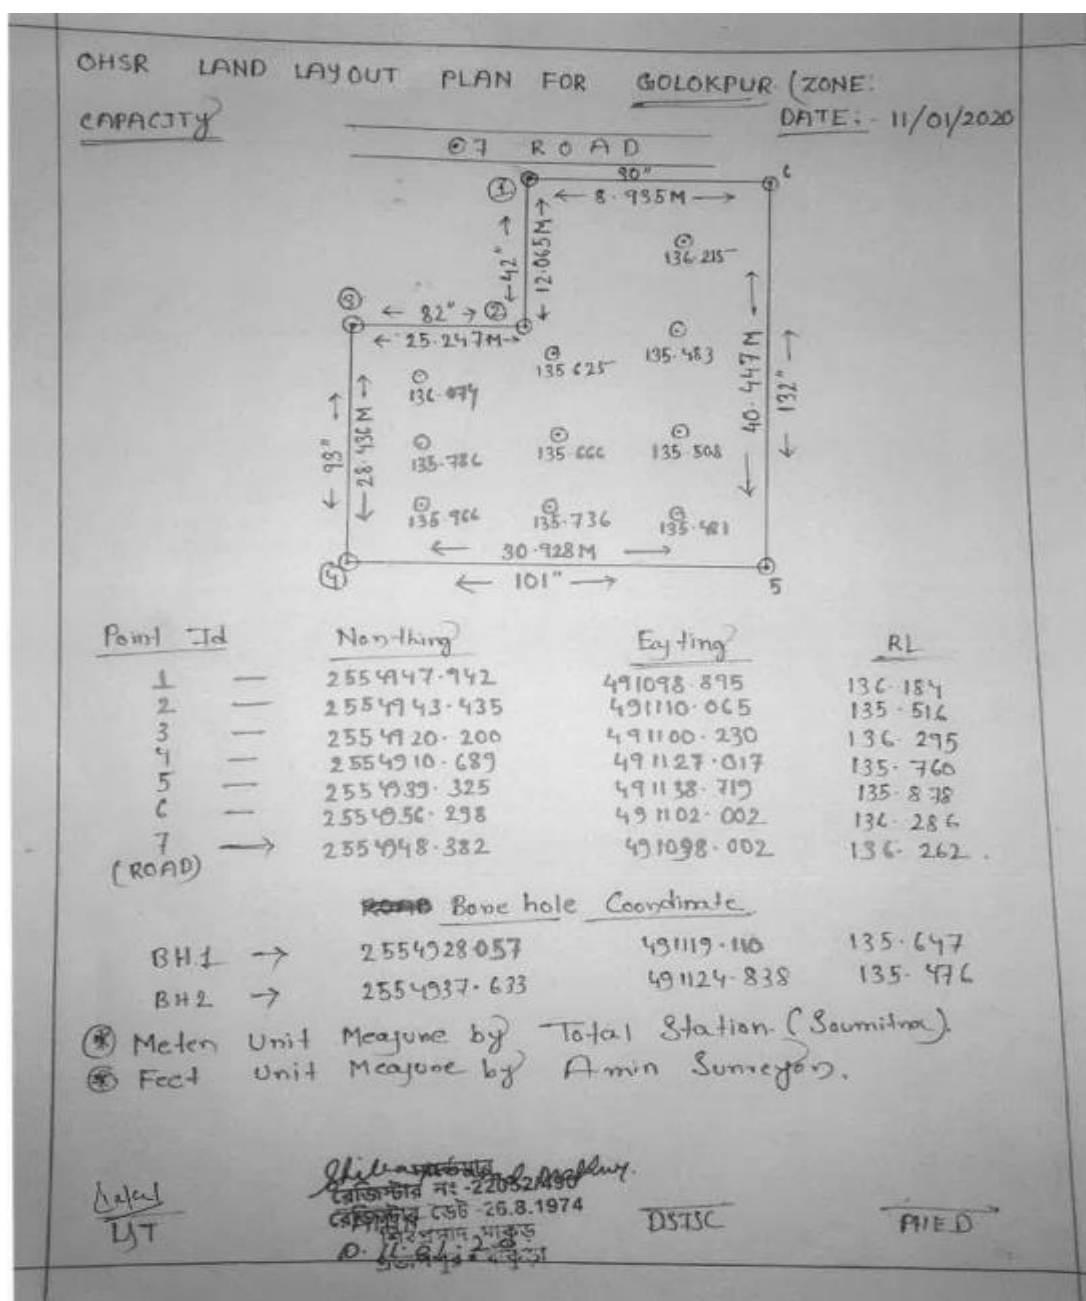 OHSR LAND LAYOUT PLAN FOR GOLOKPUR (ZONE:
CAPACITY
DATE:- 11/01/2020
7 ROAD
1
30"
6
8.935M
42"
12.065M
136.215
3
82"
2
25.247M
135.625
135.483
136.074
40.447M
132"
93"
28.436M
135.786
135.666
135.508
135.966
135.736
135.481
30.928M
4
101"
5
Point Id Northing Easting RL
1 — 2554947.942 491098.895 136.184
2 — 2554943.435 491110.065 135.516
3 — 2554920.200 491100.230 136.295
4 — 2554910.689 491127.017 135.760
5 — 2554939.325 491138.719 135.878
6 — 2554956.298 491102.002 136.286
7 → 2554948.382 491098.002 136.262.
(ROAD)
Bore hole Coordinate
BH1 → 2554928.057 491119.110 135.647
BH2 → 2554937.633 491124.838 135.476
Meter Unit Measure by Total Station (Soumitra).
Feet Unit Measure by Amin Surveyor.
রেজিস্টার নং -22052/490
রেজিস্টার ডেট -26.8.1974
L&T
DSTSC
PHED